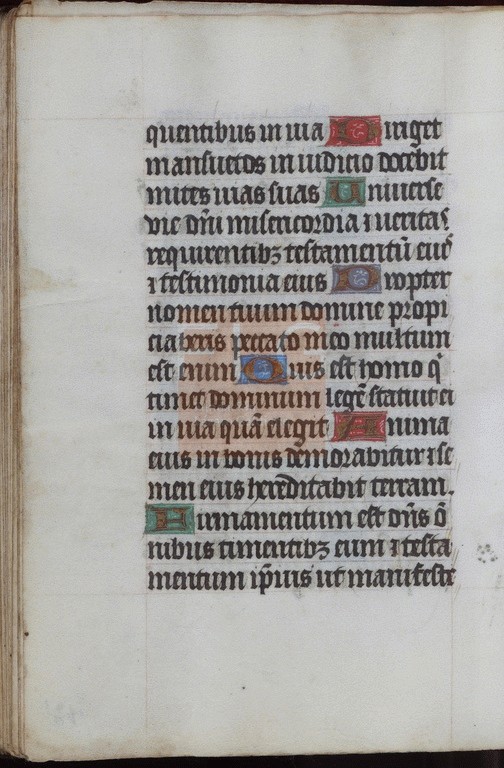 quentibus in uia Diriget
mansuetos in iudicio docebit
mites uias suas Uniuerse
vie dñi misericordia ⁊ ueritas
requirentibꝫ testamentũ eius
⁊ testimonia eius Propter
nomen tuum domine propi
ciaberis peccato meo multum
est enim Quis est homo q̃
timet dominum legẽ statuit ei
in uia quã elegit Anima
eius in bonis demorabitur ⁊ se
men eius hereditabit terram.
Firmamentum est dñs õ
nibus timentibꝫ eum ⁊ testa
mentum ip̃ius ut manifeste